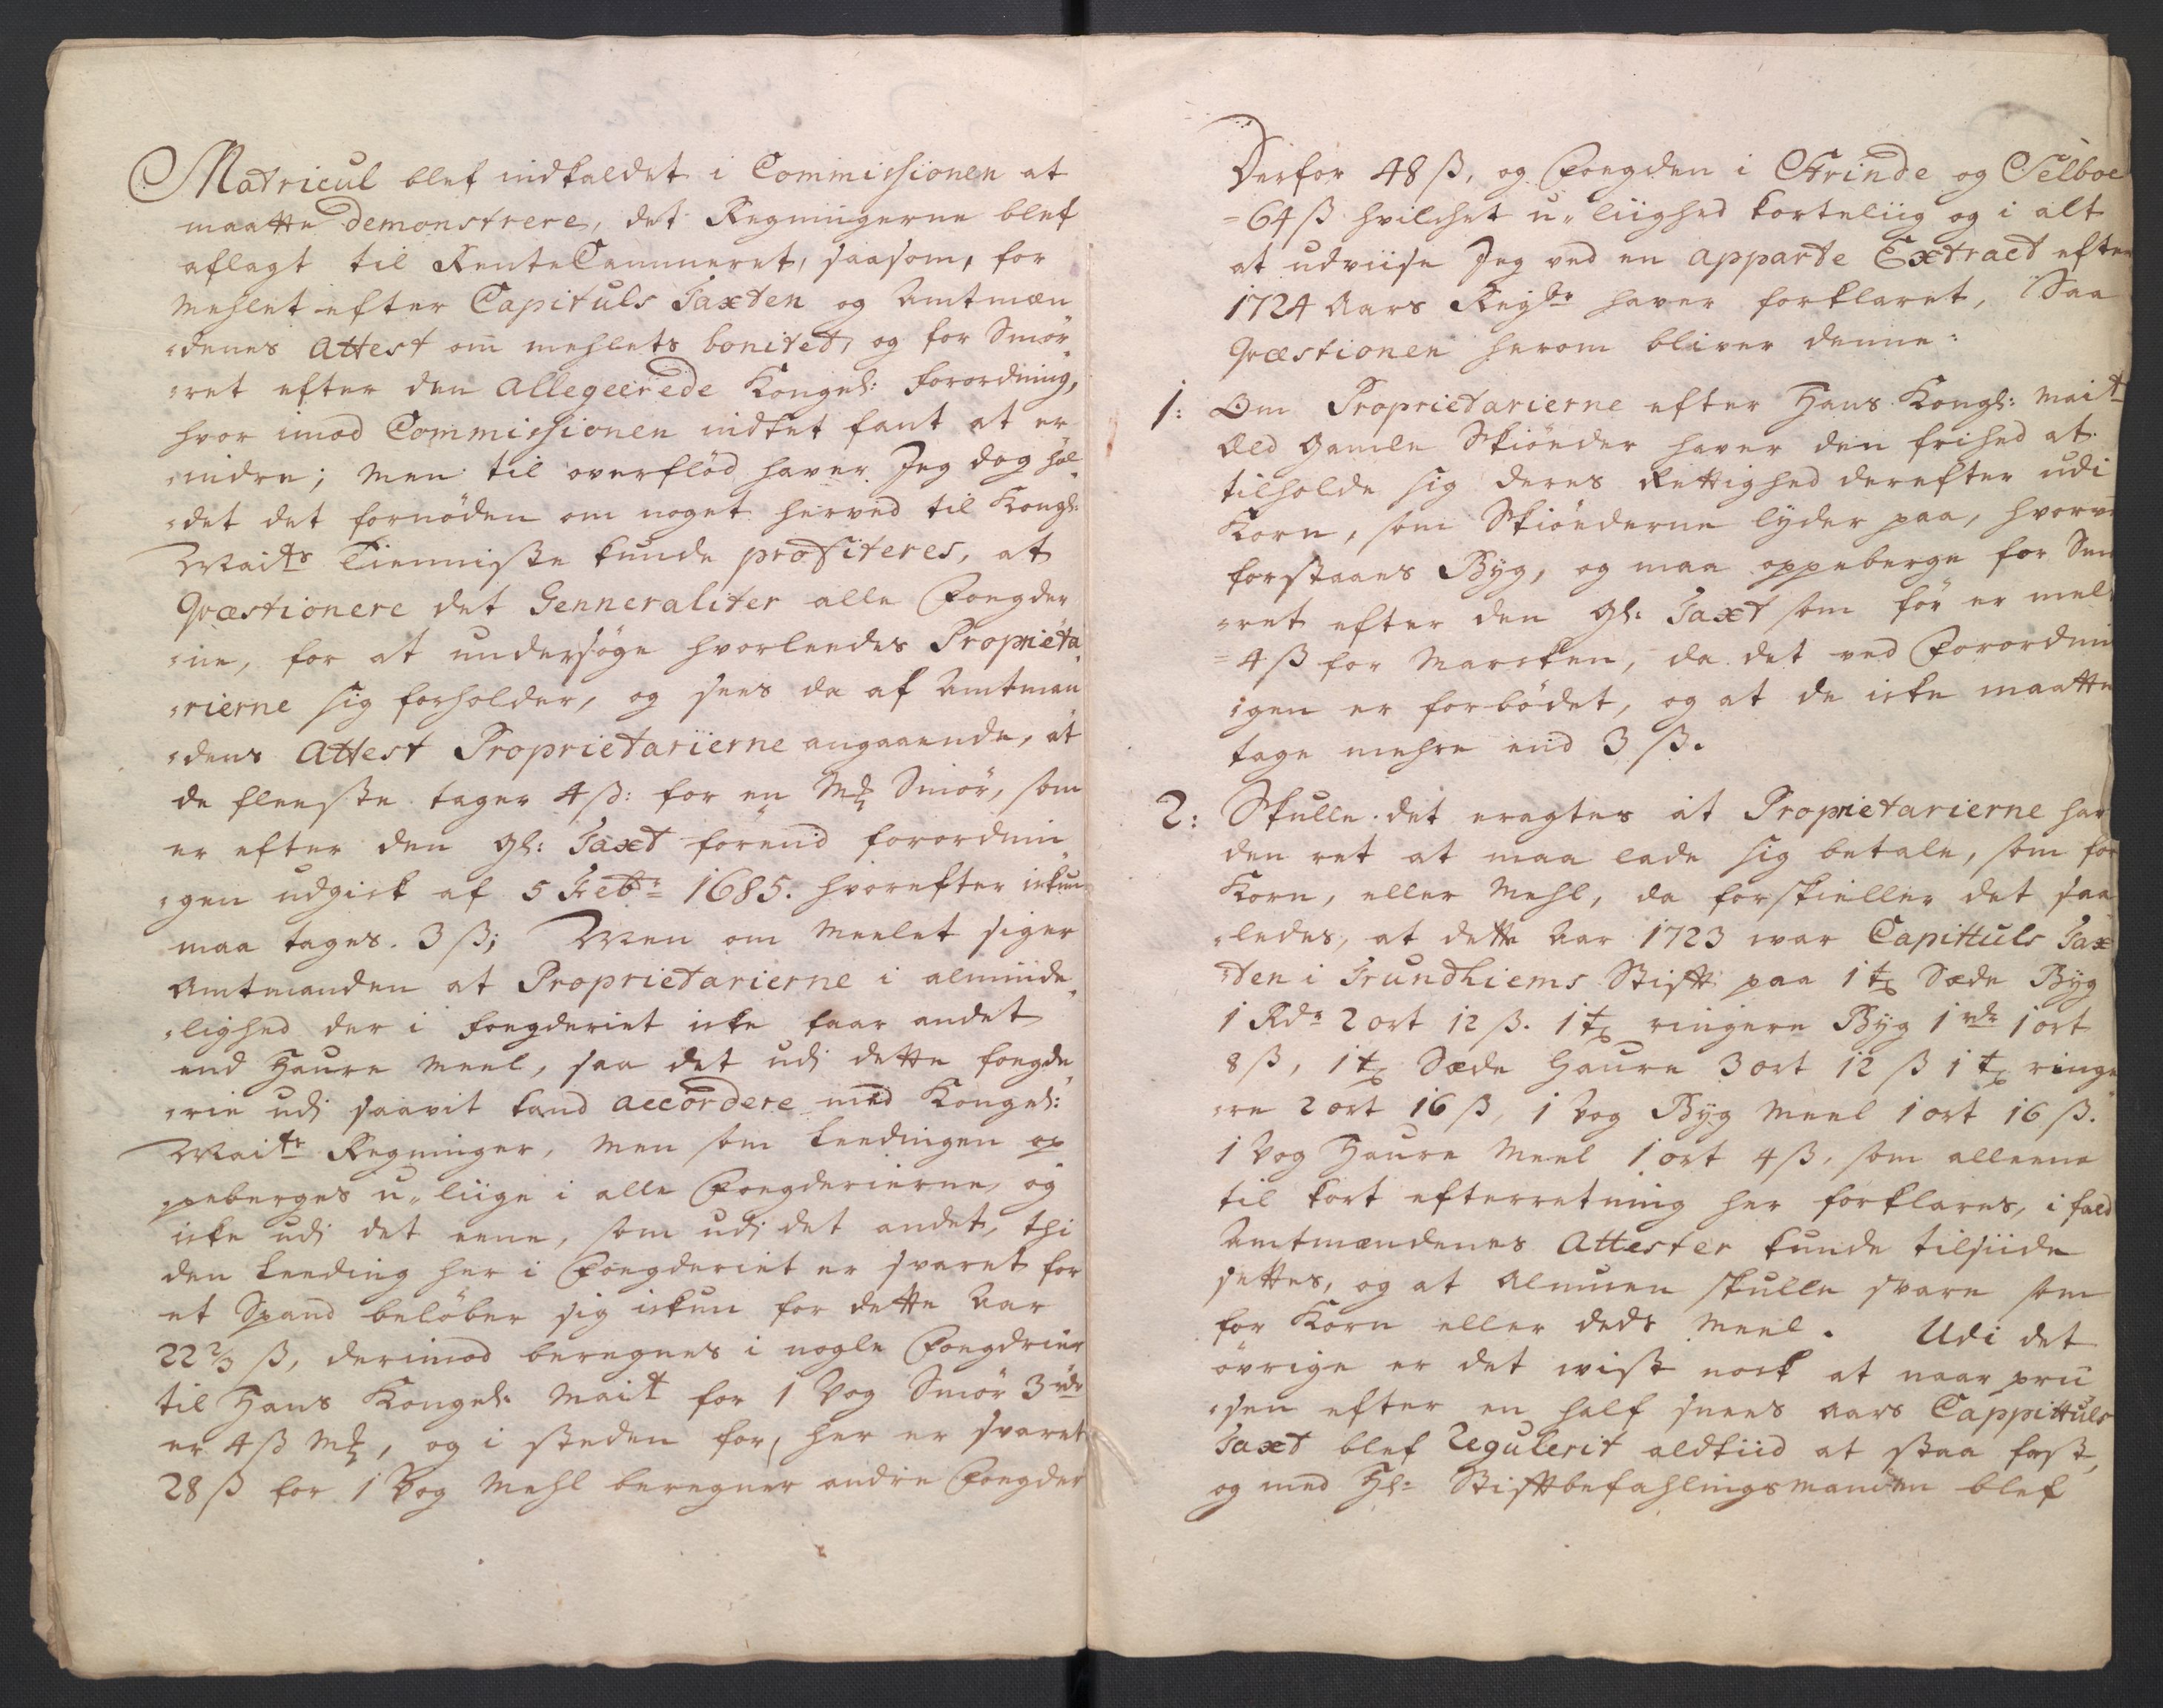 Matricul blef indkaldet i Commissionen at
maatte demonstrere, det Regningerne blef
aflagt til RenteCammeret, saasom, for
Mehlet efter Capituls Taxten og Amtmæn
denes Attest om mehlets bonitet, og for Smör
ret efter den allegeerede Kongel: forordning,
hvor imod Commissionen indtet fant at er
indre; Men til overflöd haver Jeg dog hol
det det fornöden om noget herved til Kongl:
Maits Tienniste kunde profiteres, at
Qvæstionere det Genneraliter alle Fogder
ne, for at undersöge hvorleedes Proprieta
rierne sig forholder, og sees da af Amtman
dens Attest Proprietarierne angaaende, at
de fleeste tager 4 ß: for en Mk Smör, som
er efter den gl: Taxt förend forordnin
gen udgick af 5 Febr 1685. hvorefter ickun
maa tages. 3 ß; Men om Meelet siger
Amtmanden at Proprietarierne i alminde
lighed der i fogderiet icke faar andet
end Haure Meel, saa det udj dette fogde
rie udj saavit kand accordere med Kongel:
Maits Regninger, Men som Leedingen op
peberges u-liige i alle Fogderierne, og
icke udj det eene, som udj det andet, thi
den Leeding her i Fogderiet er svaret for
et Spand belöber sig ickun for dette Aar
22 2/3 ß, derimod beregnes i nogle Fogdrier
til Hans Kongel: Mait for 1 Vog Smör 3 rdr
er 4 ß Mk, og i steden for, her er svaret
28 ß for 1 Vog Mehl beregner andre Fogder
Derfor 48 ß, og Fogden i Strinde og Selboe
64 ß hvilchet u-liighed korteliig og i alt
at udviise Jeg ved en apparte Extract efter
1724 Aars Regsr haver forklaret, Saa
Qvæstionen herom bliver denne:
1: Om Proprietarierne efter Hans Kongl: Mait
Ald Gamle Skiöeder haver den frihed at
tilholde sig deres Rettighed derefter udi
Korn, som Skiöederne lyder paa, hvorve
forstaaes Byg, og maa oppeberge for Smö
ret efter den gl: Taxt som för er mel
4 ß for Marcken, da det ved Forordnin
gen er forbödet, og at de icke maatte
tage mehre end 3 ß.
2: Skulle det eragtes at Proprietarierne har
den ret at maa lade sig betale, som for
Korn, eller Mehl, da forskieller det saa
ledes, at dette Aar 1723 war Capittuls Tax
ten i Trundhiems Stift paa 1 t Sæde Byg
1 Rdr 2 ort 12 ß. 1 t ringere Byg 1 rdr 1 ort
8 ß, 1 t Sæde Haure 3 ort 12 ß 1 t ringe
re 2 ort 16 ß, 1 Vog Byg Meel 1 ort 16 ß.
1 Vog Haure Meel 1 ort 4 ß, som alleene
til kort efterretning her forklares, i fald
Amtmændenes Attester kunde tilsiide
settes, og at Almuen skulle svare som
for Korn eller deds Meel. Udi det
övrige er det wist nock at naar pri
sen efter en half snees Aars Cappittuls
Taxt blef Regulerit aldtiid at staa fast,
og med Hl: Stiftbefahlingsmanden blef